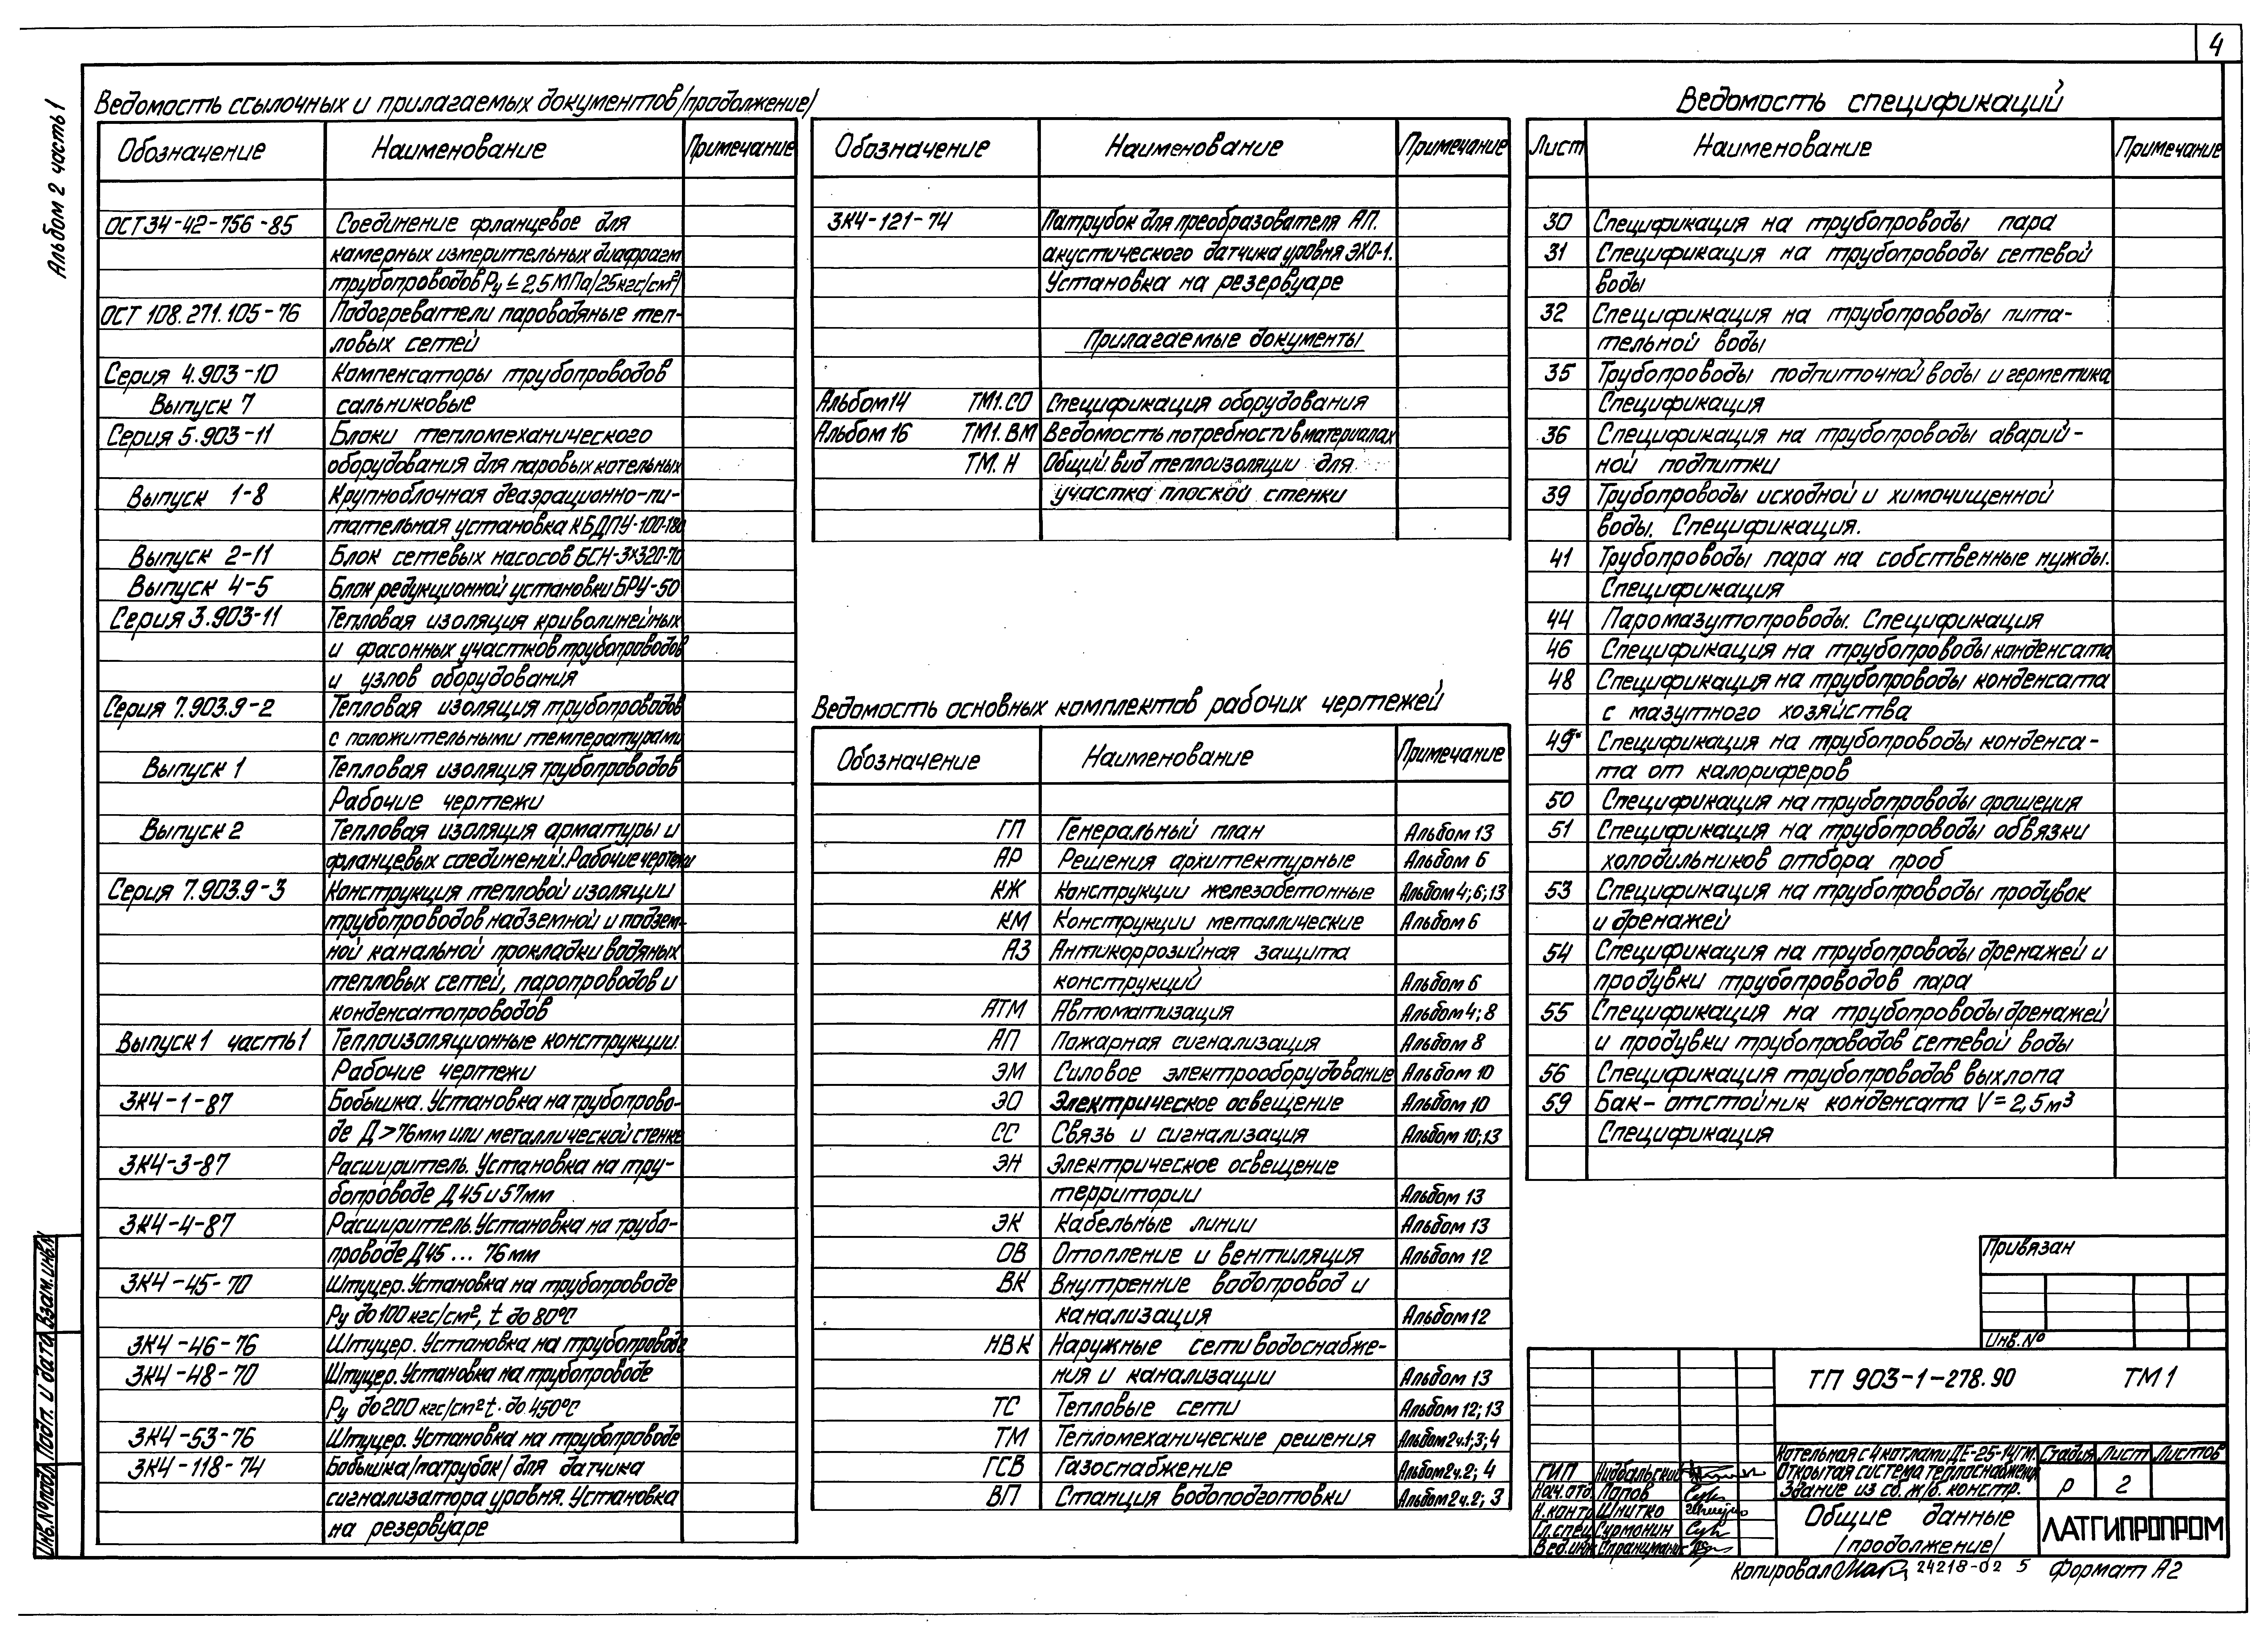 4
Альбом 2 часть 1
Ведомость ссылочных и прилагаемых документов /продолжение/
Обозначение Наименование Примечание
ОСТ 34-42-756-85 Соединение фланцевое для
камерных измерительных диафрагм
трубопроводов Ру ≤ 2,5 МПа/25кгс/см²/
ОСТ 108.271.105-76 Подогреватели пароводяные теп-
ловых сетей
Серия 4.903-10 Компенсаторы трубопроводов
Выпуск 7 сальниковые
Серия 5.903-11 Блоки тепломеханического
оборудования для паровых котельных
Выпуск 1-8 Крупноблочная деаэрационно-пи-
тательная установка КБДПУ-100-180
Выпуск 2-11 Блок сетевых насосов БСН-3х320-70
Выпуск 4-5 Блок редукционной установки БРУ-50
Серия 3.903-11 Тепловая изоляция криволинейных
и фасонных участков трубопроводов
и узлов оборудования
Серия 7.903.9-2 Тепловая изоляция трубопроводов
с положительными температурами
Выпуск 1 Тепловая изоляция трубопроводов
Рабочие чертежи
Выпуск 2 Тепловая изоляция арматуры и
фланцевых соединений. Рабочие чертежи
Серия 7.903.9-3 Конструкция тепловой изоляции
трубопроводов надземной и подзем-
ной канальной прокладки водяных
тепловых сетей, паропроводов и
конденсатопроводов
Выпуск 1 часть 1 Теплоизоляционные конструкции.
Рабочие чертежи
ЗК4-1-87 Бобышка. Установка на трубопрово-
де Д>76мм или металлической стенке
ЗК4-3-87 Расширитель. Установка на тру-
бопроводе Д 45 и 57мм
ЗК4-4-87 Расширитель. Установка на трубо-
проводе Д45 ... 76мм
ЗК4-45-70 Штуцер. Установка на трубопроводе
Ру до 100 кгс/см², t до 80°С
ЗК4-46-76 Штуцер. Установка на трубопроводе
ЗК4-48-70 Штуцер. Установка на трубопроводе
Ру до 200 кгс/см² t. до 450°С
ЗК4-53-76 Штуцер. Установка на трубопроводе
ЗК4-118-74 Бобышка/патрубок/ для датчика
сигнализатора уровня. Установка
на резервуаре
Обозначение Наименование Примечание
ЗК4-121-74 Патрубок для преобразователя АП.
акустического датчика уровня ЭХО-1.
Установка на резервуаре
Прилагаемые документы
Альбом 14 ТМ1.СО Спецификация оборудования
Альбом 16 ТМ1.ВМ Ведомость потребности в материалах
ТМ.Н Общий вид теплоизоляции для
участка плоской стенки
Ведомость основных комплектов рабочих чертежей
Обозначение Наименование Примечание
ГП Генеральный план Альбом 13
АР Решения архитектурные Альбом 6
КЖ Конструкции железобетонные Альбом 4; 6; 13
КМ Конструкции металлические Альбом 6
АЗ Антикоррозийная защита
конструкций Альбом 6
АТМ Автоматизация Альбом 4; 8
АП Пожарная сигнализация Альбом 8
ЭМ Силовое электрооборудование Альбом 10
ЭО Электрическое освещение Альбом 10
СС Связь и сигнализация Альбом 10; 13
ЭН Электрическое освещение
территории Альбом 13
ЭК Кабельные линии Альбом 13
ОВ Отопление и вентиляция Альбом 12
ВК Внутренние водопровод и
канализация Альбом 12
НВК Наружные сети водоснабже-
ния и канализации Альбом 13
ТС Тепловые сети Альбом 12; 13
ТМ Тепломеханические решения Альбом 2ч.1; 3; 4
ГСВ Газоснабжение Альбом 2ч.2; 4
ВП Станция водоподготовки Альбом 2ч.2; 3
Ведомость спецификаций
Лист Наименование Примечание
30 Спецификация на трубопроводы пара
31 Спецификация на трубопроводы сетевой
воды
32 Спецификация на трубопроводы пита-
тельной воды
35 Трубопроводы подпиточной воды и герметика
Спецификация
36 Спецификация на трубопроводы аварий-
ной подпитки
39 Трубопроводы исходной и химочищенной
воды. Спецификация.
41 Трубопроводы пара на собственные нужды.
Спецификация
44 Паромазутопроводы. Спецификация
46 Спецификация на трубопроводы конденсата
48 Спецификация на трубопроводы конденсата
с мазутного хозяйства
49 Спецификация на трубопроводы конденса-
та от калориферов
50 Спецификация на трубопроводы орошения
51 Спецификация на трубопроводы обвязки
холодильников отбора проб
53 Спецификация на трубопроводы продувок
и дренажей
54 Спецификация на трубопроводы дренажей и
продувки трубопроводов пара
55 Спецификация на трубопроводы дренажей
и продувки трубопроводов сетевой воды
56 Спецификация трубопроводов выхлопа
59 Бак-отстойник конденсата V=2,5м³
Спецификация
Привязан
Инв.№
ТП 903-1-278.90 ТМ1
Котельная с 4 котлами ДЕ-25-14ГМ.
Открытая система теплоснабжения
Здание из сб. ж/б. констр.
Стадия Лист Листов
Р 2
ГИП Нидбальский
Нач.отд. Попов
Н.контр Шнитко
Гл.спец Сурмонин
Вед.инж
Общие данные
/продолжение/
ЛАТГИПРОПРОМ
Копировал 24218-02 5 Формат А2
Взам.инв.№
Подп. и дата
Инв.№подл.